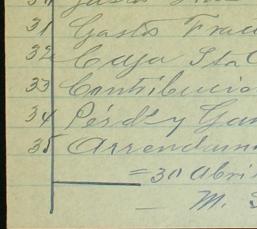 31 Gasto Frac
32 Caja Sta
33 Contribucio
34 Pérd.s y Gan
35 Arrendam
=30 Abri
M.